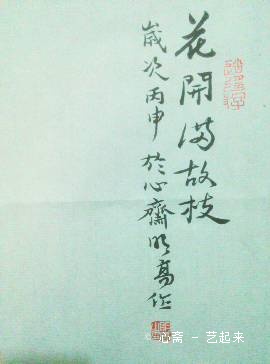 花開滿故枝
歲次丙申於心齋明高作
心斋 - 艺起来